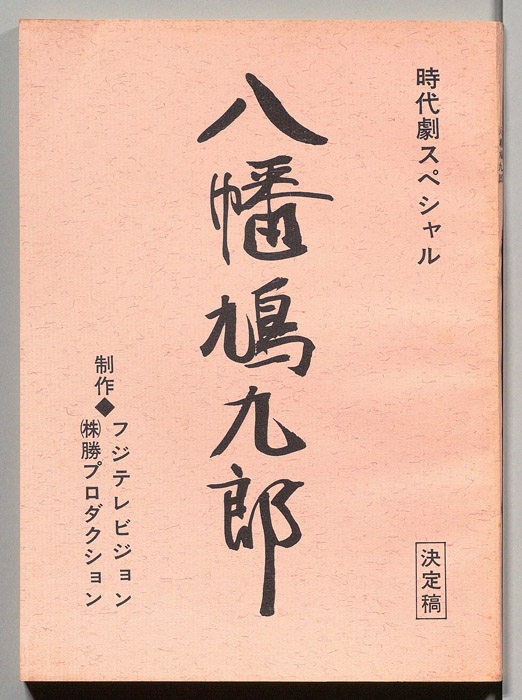 時代劇スペシャル
決定稿
八幡鳩九郎
制作◆フジテレビジョン
㈱勝プロダクション